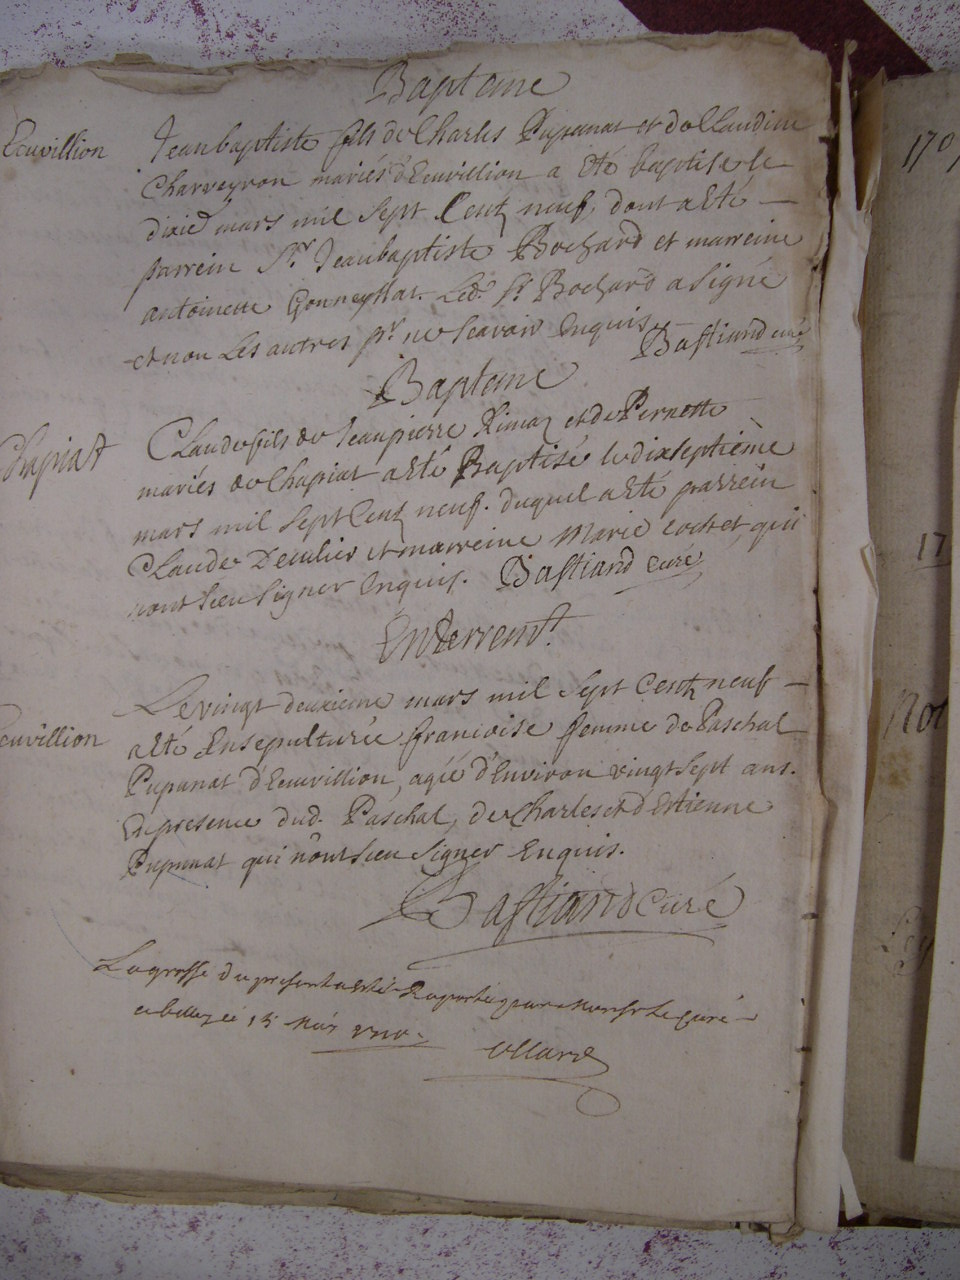 Baptame
Ecuvillion
Jean baptiste fils de Charles Pupunat et de Claudine
Charveyron mariés d'Ecuvillion a été baptisé le
dixie mars mil sept Centz neuf, dont a été
parrein Sr. Jean baptiste Bochard et marreine
antoinette Gonneyssat. Led. Sr Bochard a signé
et non Les autres pr. ne scavoir Enquis. Bastiand curé
Baptame
Chapiat
Claude fils de Jean pierre Rimaz et de Pernette
mariés de Chapiat a été Baptisé le dixseptième
mars mil sept Centz neuf. duquel a été parrein
Claude Deculier et marreine Marie cochet, qui
nont sceu signer Enquis. Bastiand curé
Enterremt.
Ecuvillion
Le vingt deuxieme mars mil sept Centz neuf
a été Ensepulturée francoise femme de Paschal
Pupunat d'Ecuvillion, agée d'Environ vingt sept ans.
En presence dud. Paschal, de Charles et d'Estienne
Pupunat qui n'ont sceu signer Enquis.
Bastiand Curé
La grosse du present a esté Raportée par Monsr Le Curé
ce 15 1710
170
17
Not